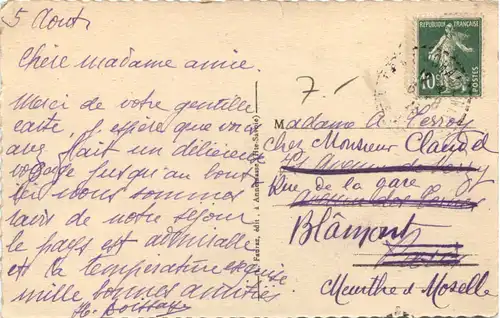 5 Août
Chère madame amie.
Merci de votre gentille
carte, j'espère que vous
avez fait un délicieux
voyage jusqu'au bout
ici nous sommes
ravis de notre séjour
le pays est admirable
et la température exquise
mille bonnes amitiés
7.-
M
Madame A
chez Monsieur Claudel
Rue de la gare
Blâmont
Meurthe & Moselle
REPUBLIQUE FRANÇAISE
10c
POSTES